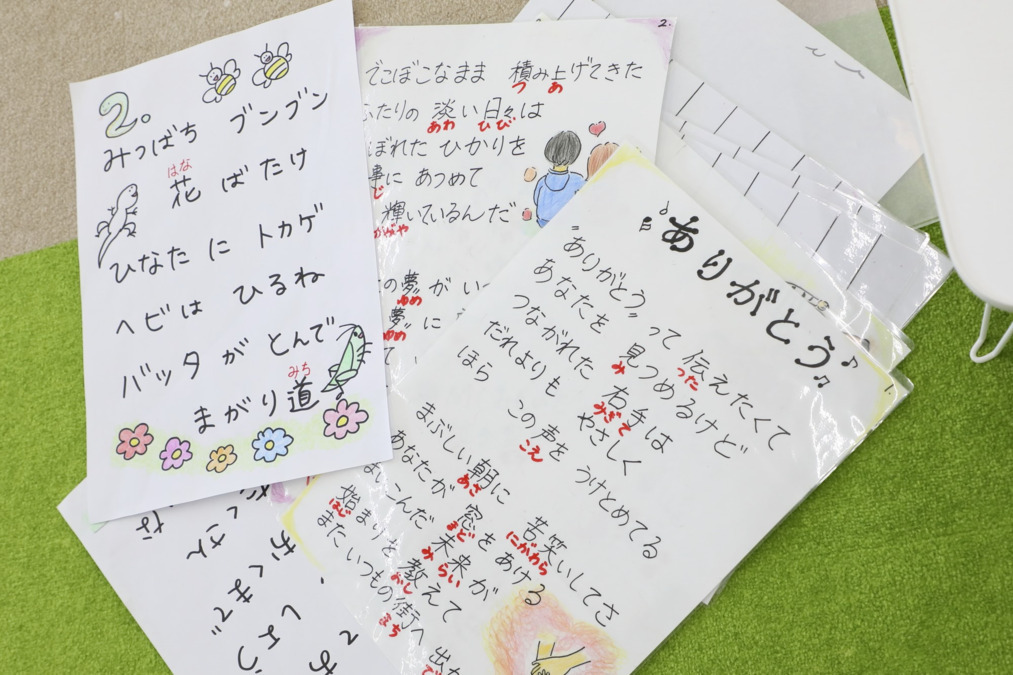 2。
みつばち ブンブン
はな
花 ばたけ
ひなた に トカゲ
ヘビは ひるね
バッタ が とんで
みち
まがり道
2.
でこぼこなまま 積み上げてきた
つ あ
ふたりの 淡い日々は
あわ ひび
ぼれた ひかりを
事に あつめて
じ
輝いているんだ
かがや
の夢が い
ゆめ
夢に
ゆめ
1.
ありがとう
"ありがとう" って 伝えたくて
つた
あなたを 見つめるけど
み
つながれた 右手は
みぎて
だれよりも やさしく
ほら この声を うけとめてる
こえ
まぶしい朝に 苦笑いしてさ
あさ にがわら
あなたが 窓をあける
まど
まいこんだ 未来が
みらい
始まりを 教えて
はじ おし
また いつもの街へ 出か
まち